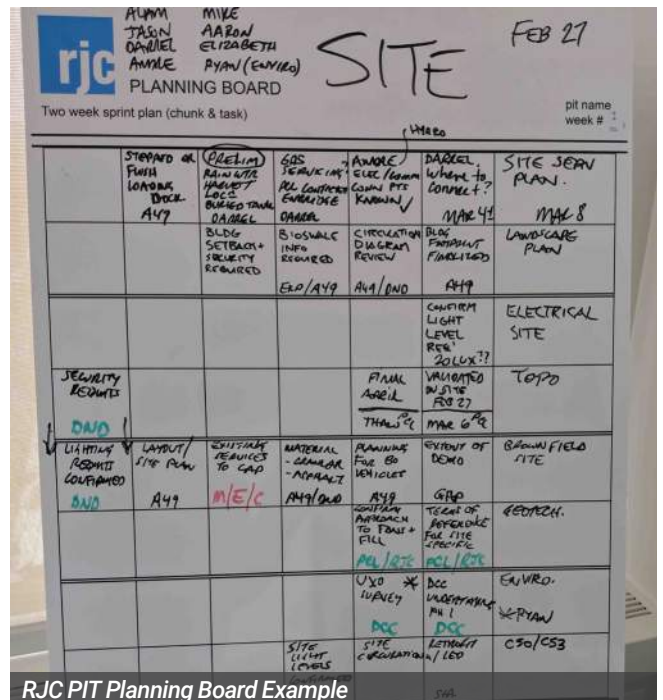 ADAM MIKE
JASON AARON
DARREL ELIZABETH
ANDRE RYAN (ENVIRO)
SITE
FEB 27
rjc
PLANNING BOARD
Two week sprint plan (chunk & task)
pit name
week #
HYDRO
STEPPED OR
FLUSH
LOADING
DOCK
A49
PRELIM
RAIN WTR
HARVEST
LOCS
BURIED TANK
DARREL
GAS
SERVICING
PCL CONTACTS
ENBRIDGE
DARREL
ANDRE
ELEC/COMM
CONN PTS
KNOWN
DARREL
Where to
connect?
MAR 4
SITE SERV
PLAN.
MAR 8
BLDG
SETBACK +
SECURITY
REQUIRED
BIOSWALE
INFO
REQUIRED
EXP/A49
CIRCULATION
DIAGRAM
REVIEW
A49/DND
BLDG
FOOTPRINT
FINALIZED
A49
LANDSCAPE
PLAN
CONFIRM
LIGHT
LEVEL
REQ'
20 LUX??
ELECTRICAL
SITE
SECURITY
REQMTS
DND
FINAL
APRIL
THAW
VALIDATED
ON SITE
FEB 27
MAR 6
TOPO
LIGHTING
REQMTS
CONFIRMED
DND
LAYOUT/
SITE PLAN
A49
EXISTING
SERVICES
TO CAP
M/E/C
MATERIAL
- GRANULAR
- ASPHALT
A49/DND
PLANNING
FOR 80
VEHICLES
A49
EXTENT OF
DEMO
BROWNFIELD
SITE
CONFIRM
APPROACH
TO FDNS +
FILL
PCL/RJC
TERMS OF
REFERENCE
FOR SITE
SPECIFIC
PCL/RJC
GEOTECH.
UXO *
SURVEY
DCC
DCC
UNDERTAKING
PH 1
DCC
ENVIRO.
*RYAN
SITE
LIGHT
LEVELS
SITE
CIRCULATION
RETROFIT
/ LED
C50/C53
RJC PIT Planning Board Example